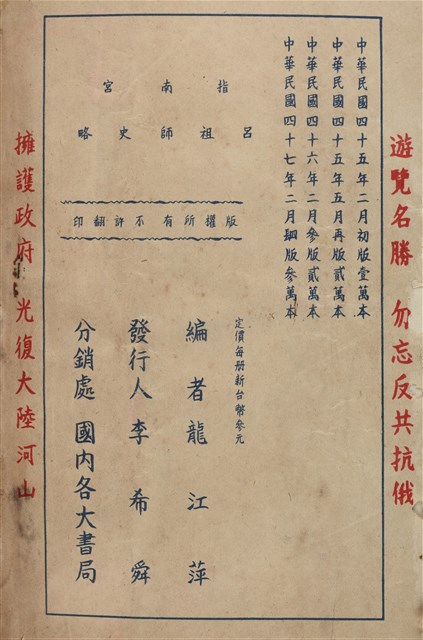 遊覽名勝 勿忘反共抗俄
中華民國四十五年二月初版壹萬本
中華民國四十五年五月再版貳萬本
中華民國四十六年二月參版貳萬本
中華民國四十七年二月肆版參萬本
指南宮
呂祖師史略
版權所有不許翻印
定價每册新台幣參元
編者龍江萍
發行人李希舜
分銷處 國內各大書局
擁護政府 光復大陸河山